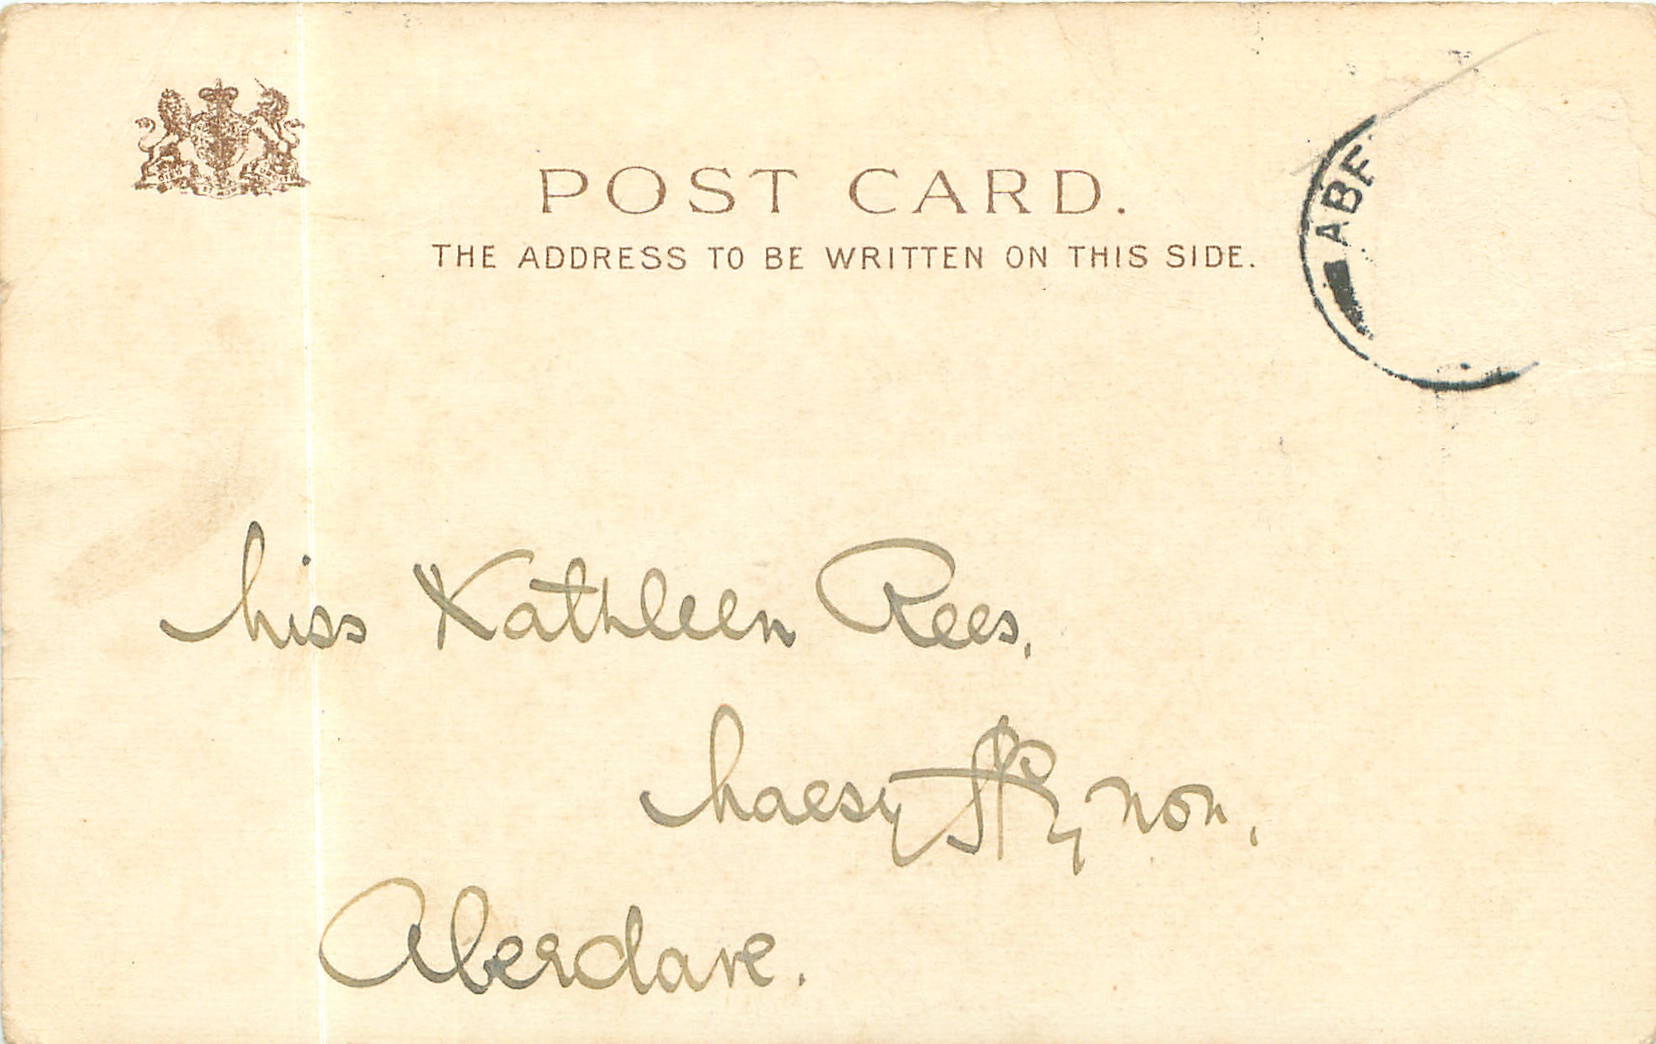 POST CARD.
THE ADDRESS TO BE WRITTEN ON THIS SIDE.
ABE
Miss Kathleen Rees,
Maesyffynon,
Aberdare.